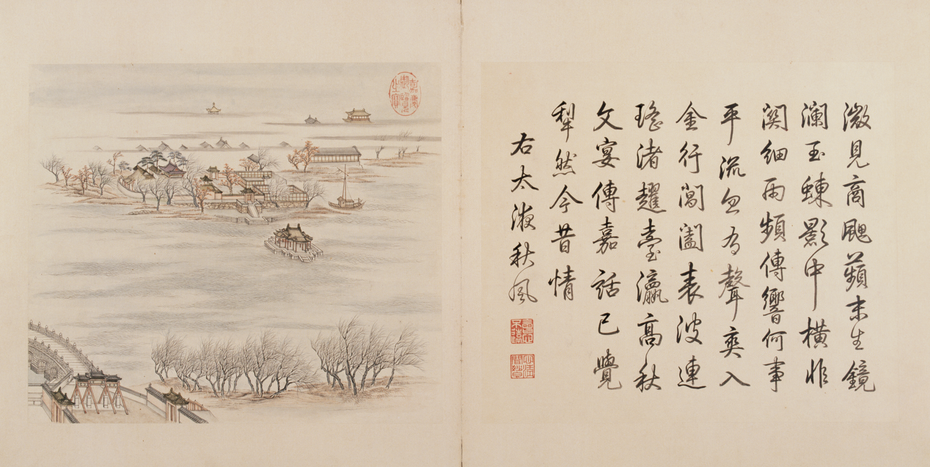 微見商飇蘋末生鏡
瀾玉蝀影中橫非
関細雨頻傳響何事
平流忽有聲爽入
金行閶闔表波連
瑤渚趯臺瀛高秋
文宴傳嘉話已覺
犁然今昔情
右太液秋風